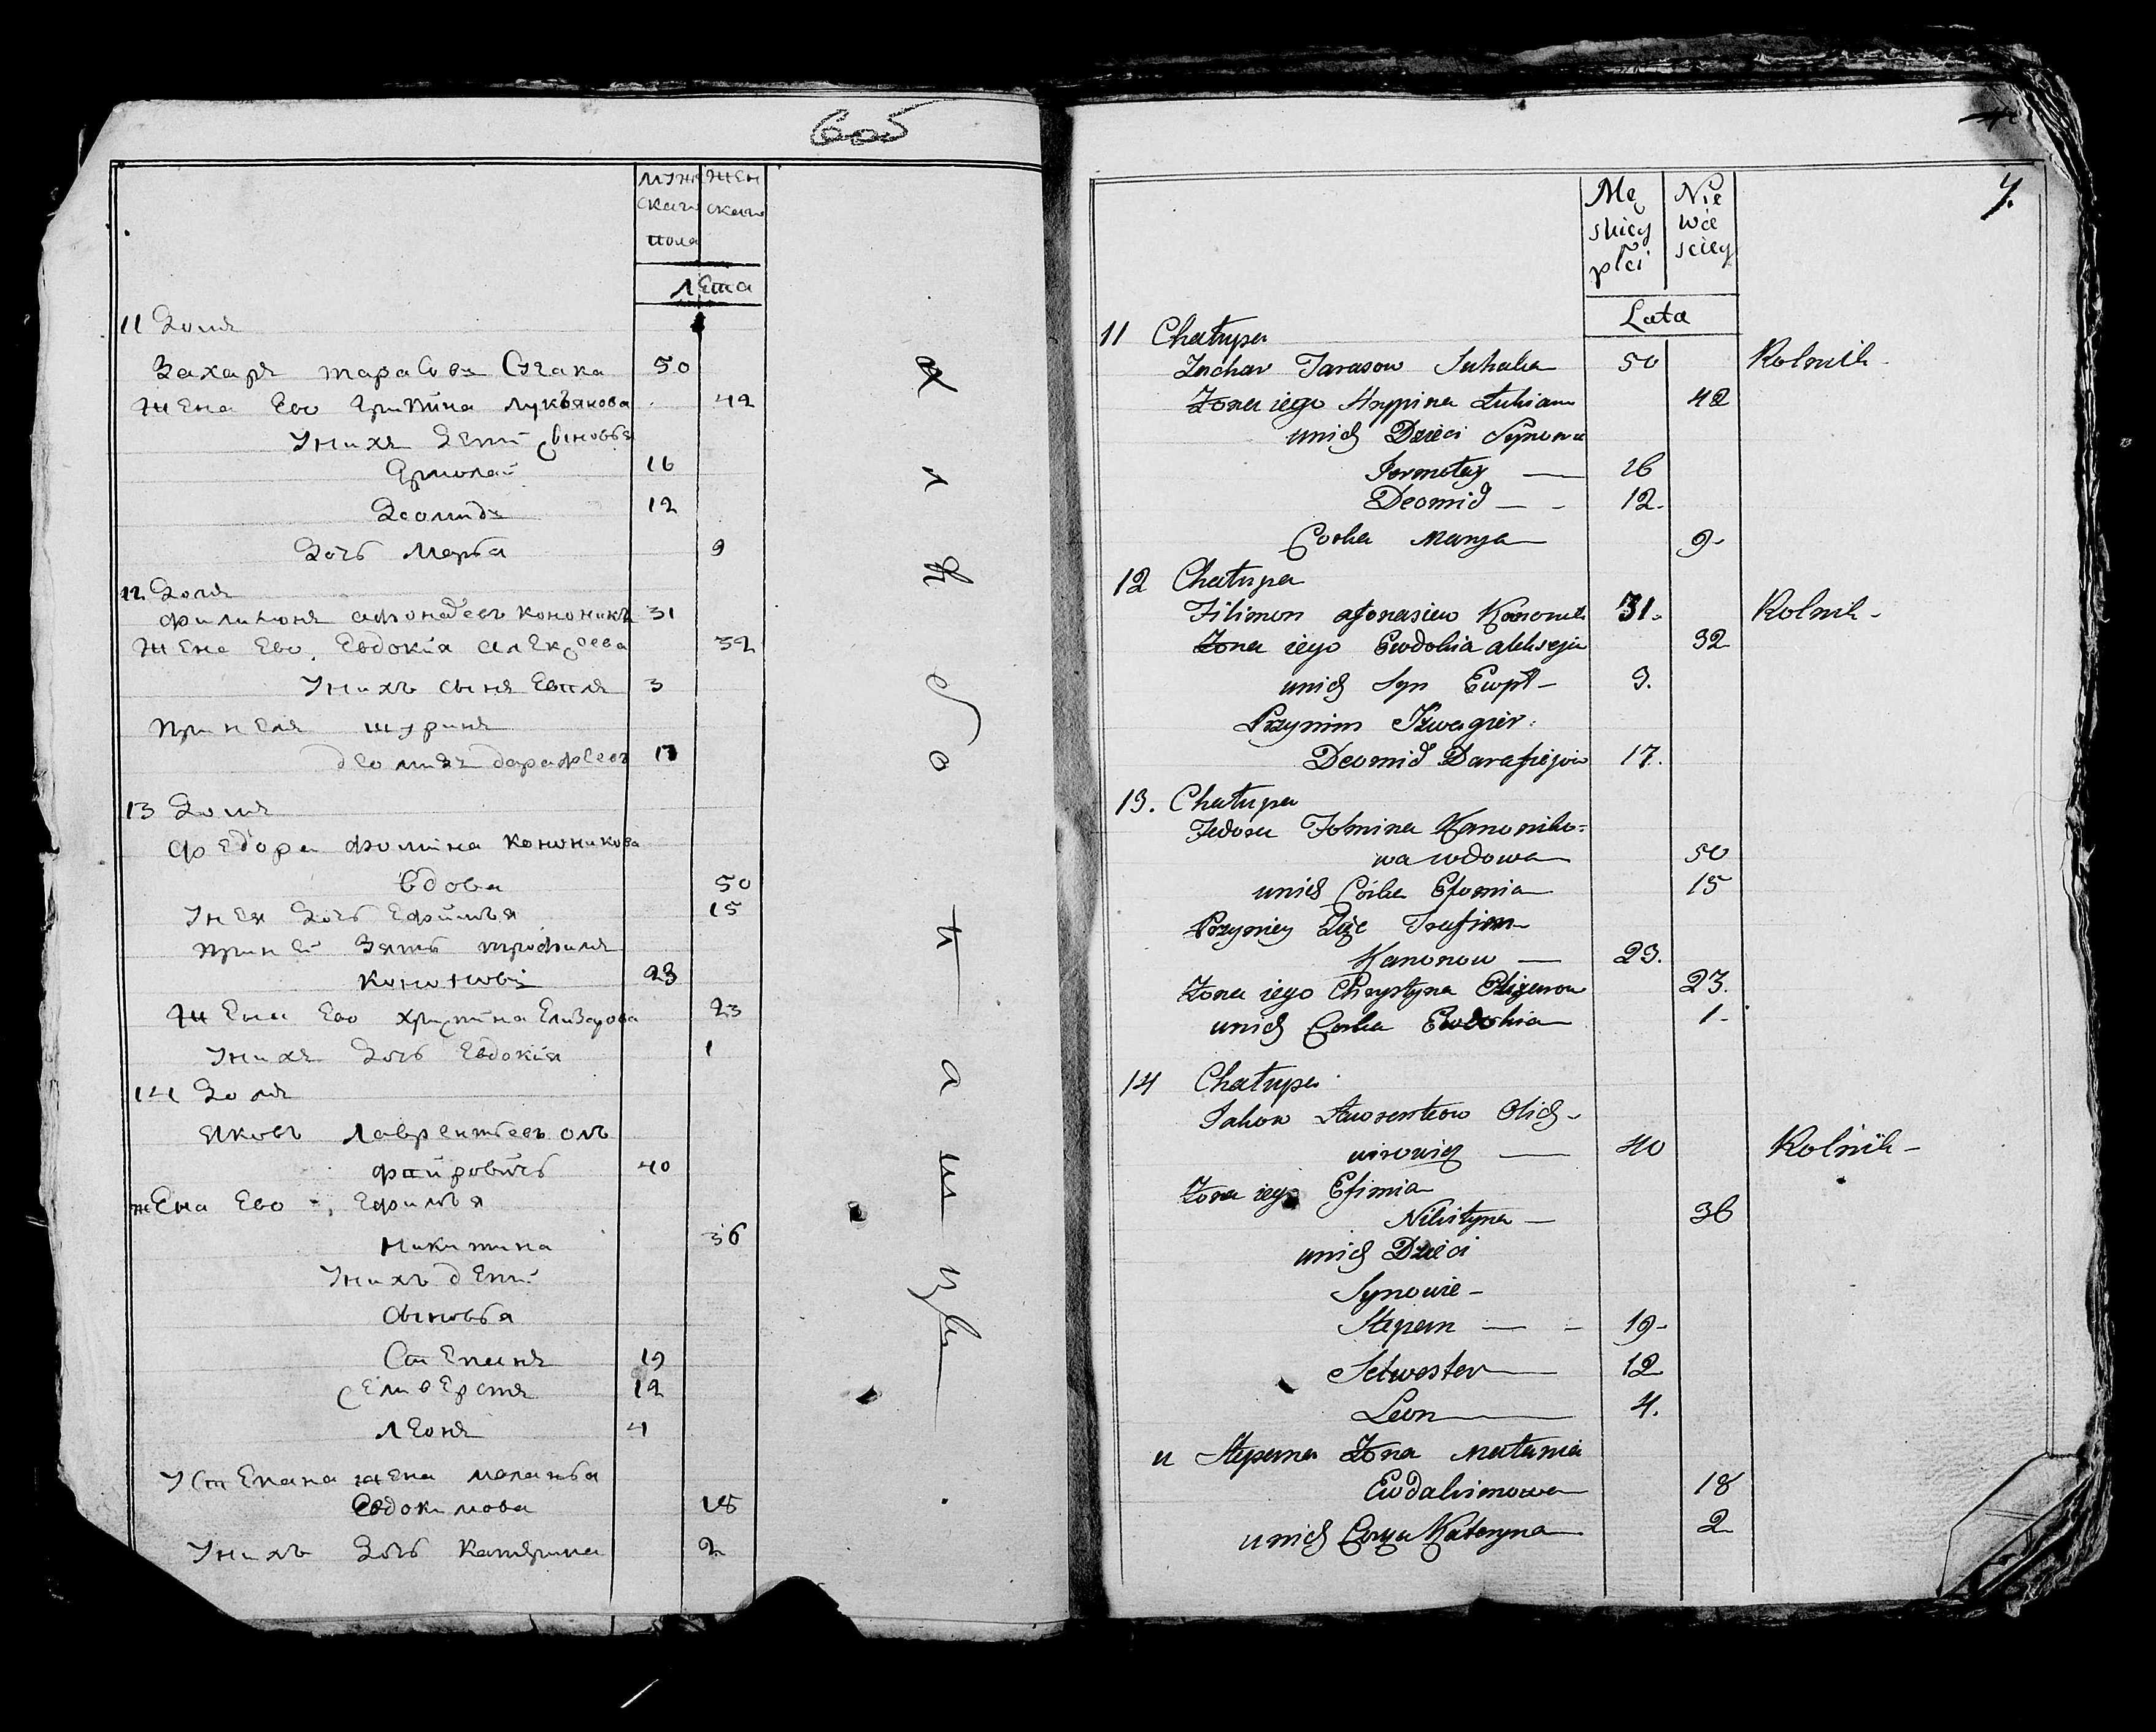 6об
мужскаго пола
женскаго
лета
11 Домъ
Захаръ тарасовъ Сухака 50
Жена Ево Грипина лукьянова 42
У нихъ Дети сыновья
Ермолай 16
Деомидъ 12
Дочь Марья 9
12 Домъ
филимонъ афонасевъ кононикъ 31
Жена Ево Евдокія алексеева 32
У нихъ сынъ Евплъ 3
При немъ шуринъ
деомидъ дарафеевъ 17
13 Домъ
федора фомина кононикова
вдова 50
У нея Дочь Ефимья 15
При ней Зять трофимъ
кононовъ 23
Жена Ево христина Елизарова 23
У нихъ Дочь Евдокія 1
14 Домъ
яковъ лаврентьевъ олъ
фировичь 40
жена Ево Ефимья
Никитина 36
У нихъ дети
Сыновья
Степанъ 19
Селиверстъ 12
леонъ 4
У Степана жена маланья
Евдокимова 18
У нихъ Дочь катярина 2
7.
Męskiey płci
Niewieściey
Lata
11 Chałupa
Zachar Tarasow Suhaka 50 Rolnik
Żona iego Hrypina Łukian 42
unich Dzieci Synowie
Jermołay 16
Deomid 12
Corka Marya 9
12 Chałupa
Filimon afonasiew Kononik 31. Rolnik
Żona iego Ewdokia alekseju 32
unich Syn Ewpł 3.
Przynim Szwagier
Deomid Darafiejow 17.
13. Chałupa
Fedora Fomina Kanoniko=
wa wdowa 50
unich Córka Efomia 15
Przyniey Zięc Trafim
Kanonow 23.
Żona iego Chrystyna Elizarow 23.
unich Corka Ewdokia 1
14 Chałupa
Jakow Ławrentiow Olich
wirowicz 40 Rolnik
Żona iego Efimia
Nikityna 36
unich Dzieci
Synowie
Stepan 19
Selwester 12
Leon 4.
u Stepana Żona Matania
Ewdakimowa 18
unich Corka Kateryna 2